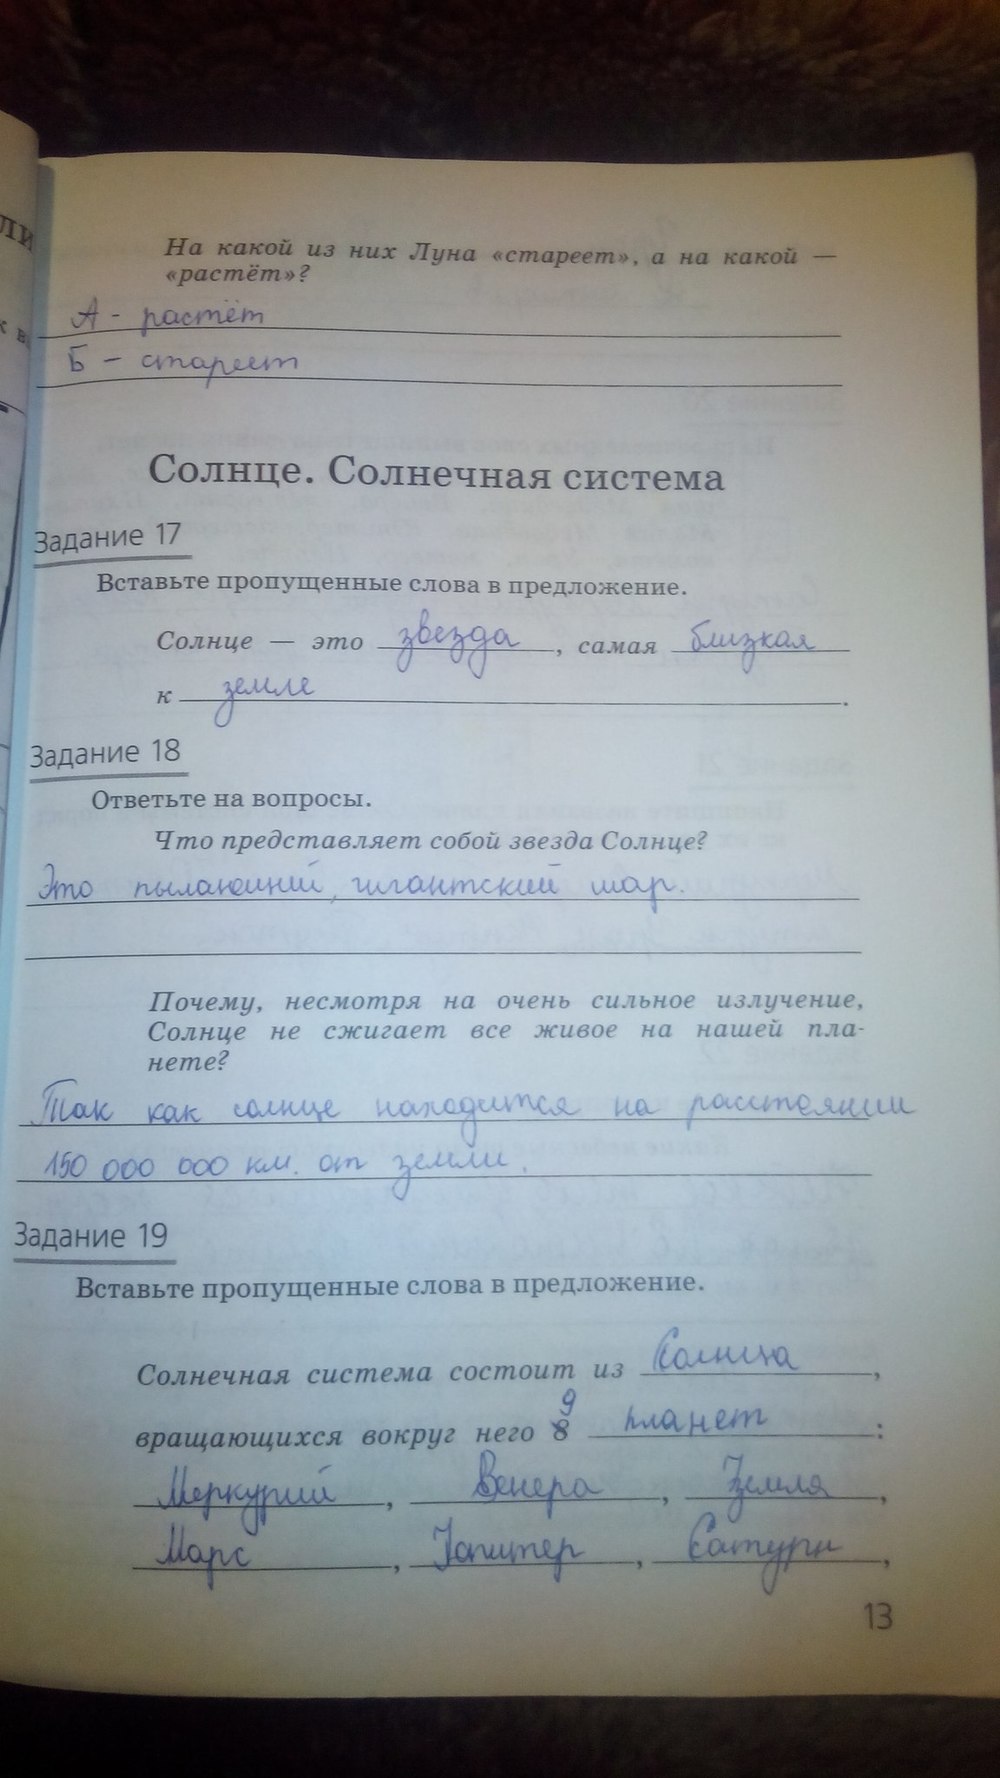 На какой из них Луна «стареет», а на какой —
«растёт»?
А - растёт
Б - стареет
Солнце. Солнечная система
Задание 17
Вставьте пропущенные слова в предложение.
Солнце — это звезда, самая близкая
к земле.
Задание 18
Ответьте на вопросы.
Что представляет собой звезда Солнце?
Это пылающий, гигантский шар.
Почему, несмотря на очень сильное излучение,
Солнце не сжигает все живое на нашей пла-
нете?
Так как солнце находится на расстоянии
150 000 000 км. от земли.
Задание 19
Вставьте пропущенные слова в предложение.
Солнечная система состоит из Солнца,
9
вращающихся вокруг него 8 планет:
Меркурий, Венера, Земля,
Марс, Юпитер, Сатурн,
13